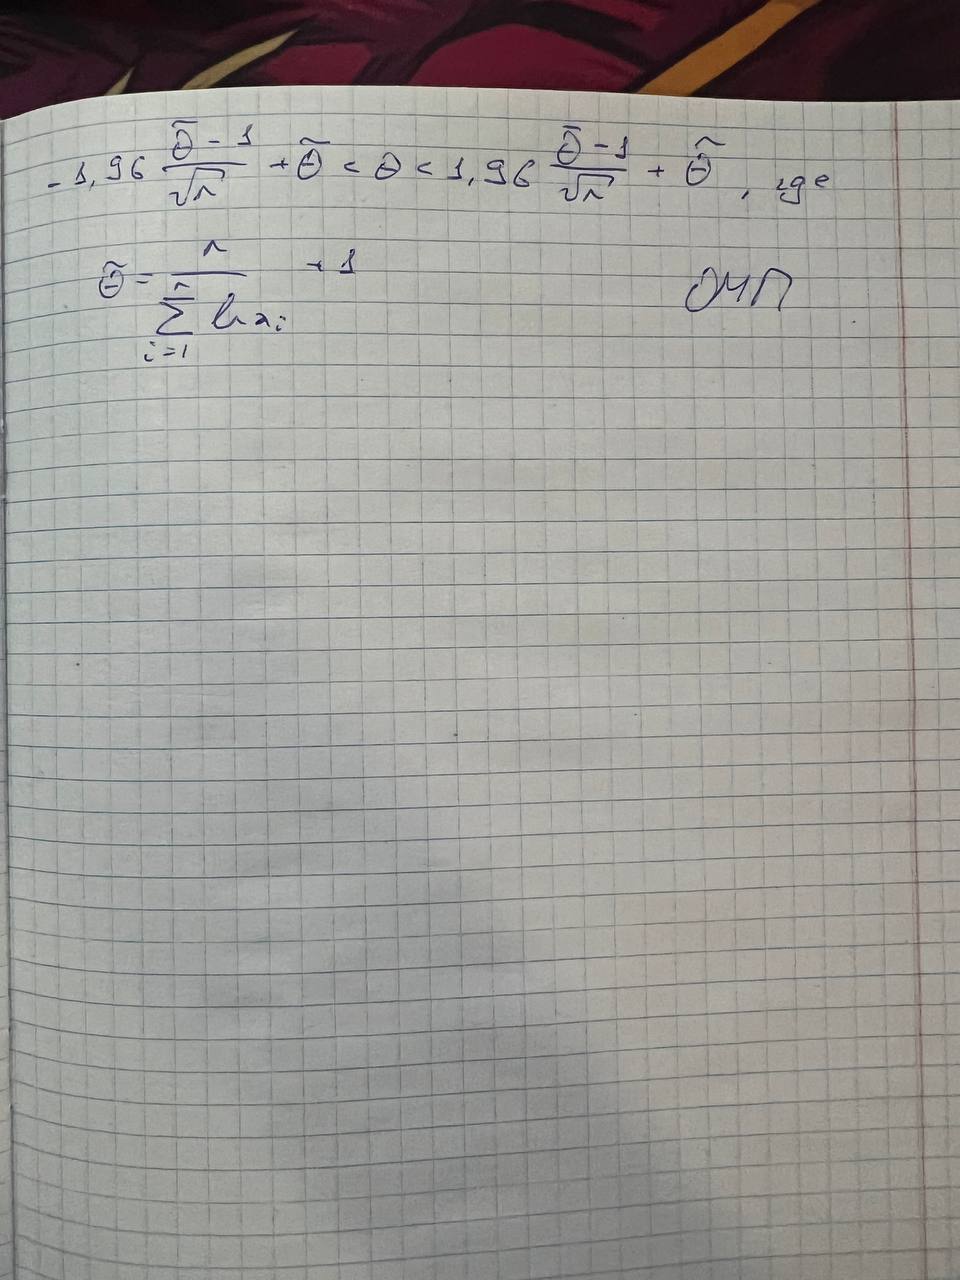 -1,96 (θ̃-1)/√n + θ̃ < θ < 1,96 (θ̃-1)/√n + θ̃, где
θ̃ = n/(∑_{i=1}^{n} ln x_i) + 1 ОМП